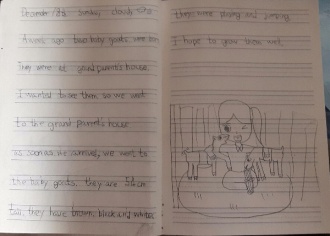 December Sunday cloudy
A week ago two baby goats were born
They were at grand parent's house
I wanted to see them so we went
to the grand parent's house
as soon as we arrived, we went to
the baby goats, they are 54cm
tall, they have brown, black and white
they were playing and
I hope to grow them well